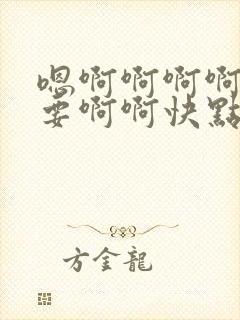 嗯啊啊啊啊
要啊啊快點
方金龍